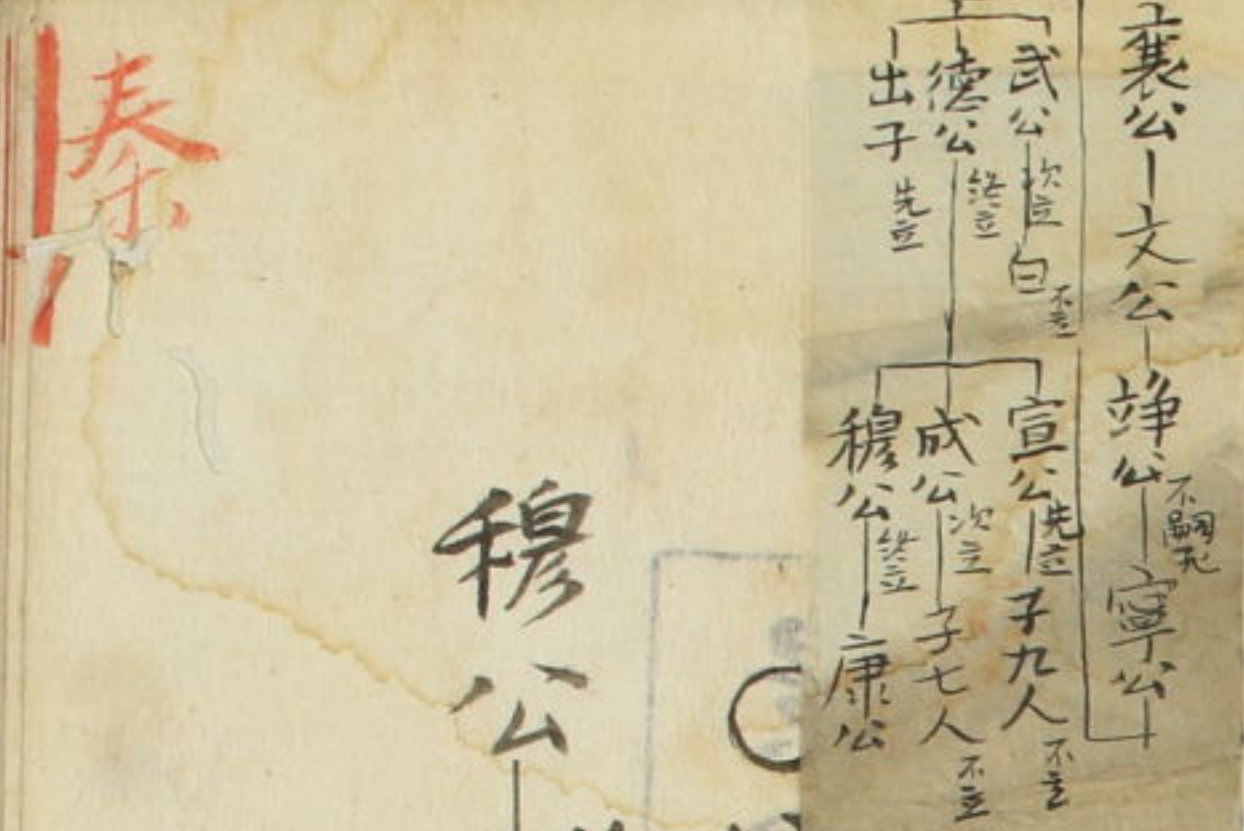 襄公 文公 竫公 不嗣死 寧公
武公 次立 白 不立
德公 終立
出子 先立
宣公 先立 子九人 不立
成公 次立 子七人 不立
穆公 終立 康公
穆公
秦